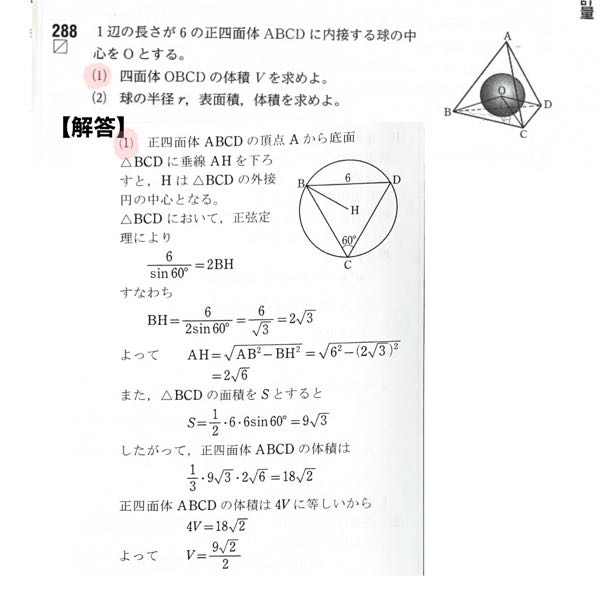 計量
288 1辺の長さが6の正四面体 ABCD に内接する球の中
心をOとする。
(1) 四面体 OBCD の体積 V を求めよ。
(2) 球の半径 r，表面積，体積を求めよ。
A
O
B
D
C
【解答】
(1) 正四面体 ABCD の頂点 A から底面
△BCD に垂線 AH を下ろ
すと，H は △BCD の外接
円の中心となる。
△BCD において，正弦定
理により
B
6
D
H
60°
C
6/sin60°=2BH
すなわち
BH=6/2sin60°=6/√3=2√3
よって AH=√AB²−BH²=√6²−(2√3)²
=2√6
また，△BCD の面積を S とすると
S=1/2・6・6sin60°=9√3
したがって，正四面体 ABCD の体積は
1/3・9√3・2√6=18√2
正四面体 ABCD の体積は 4V に等しいから
4V=18√2
よって V=9√2/2